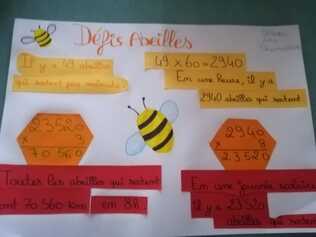 Défis Abeilles
Il y a 49 abeilles
qui sortent par minute
49 x 60 = 2940
En une heure, il y a
2940 abeilles qui sortent
23520
x 3
70 560
2940
x 8
23520
Toutes les abeilles qui sortent
font 70 560 km en 8h
En une journée scolaire
il y a 23520
abeilles qui sortent